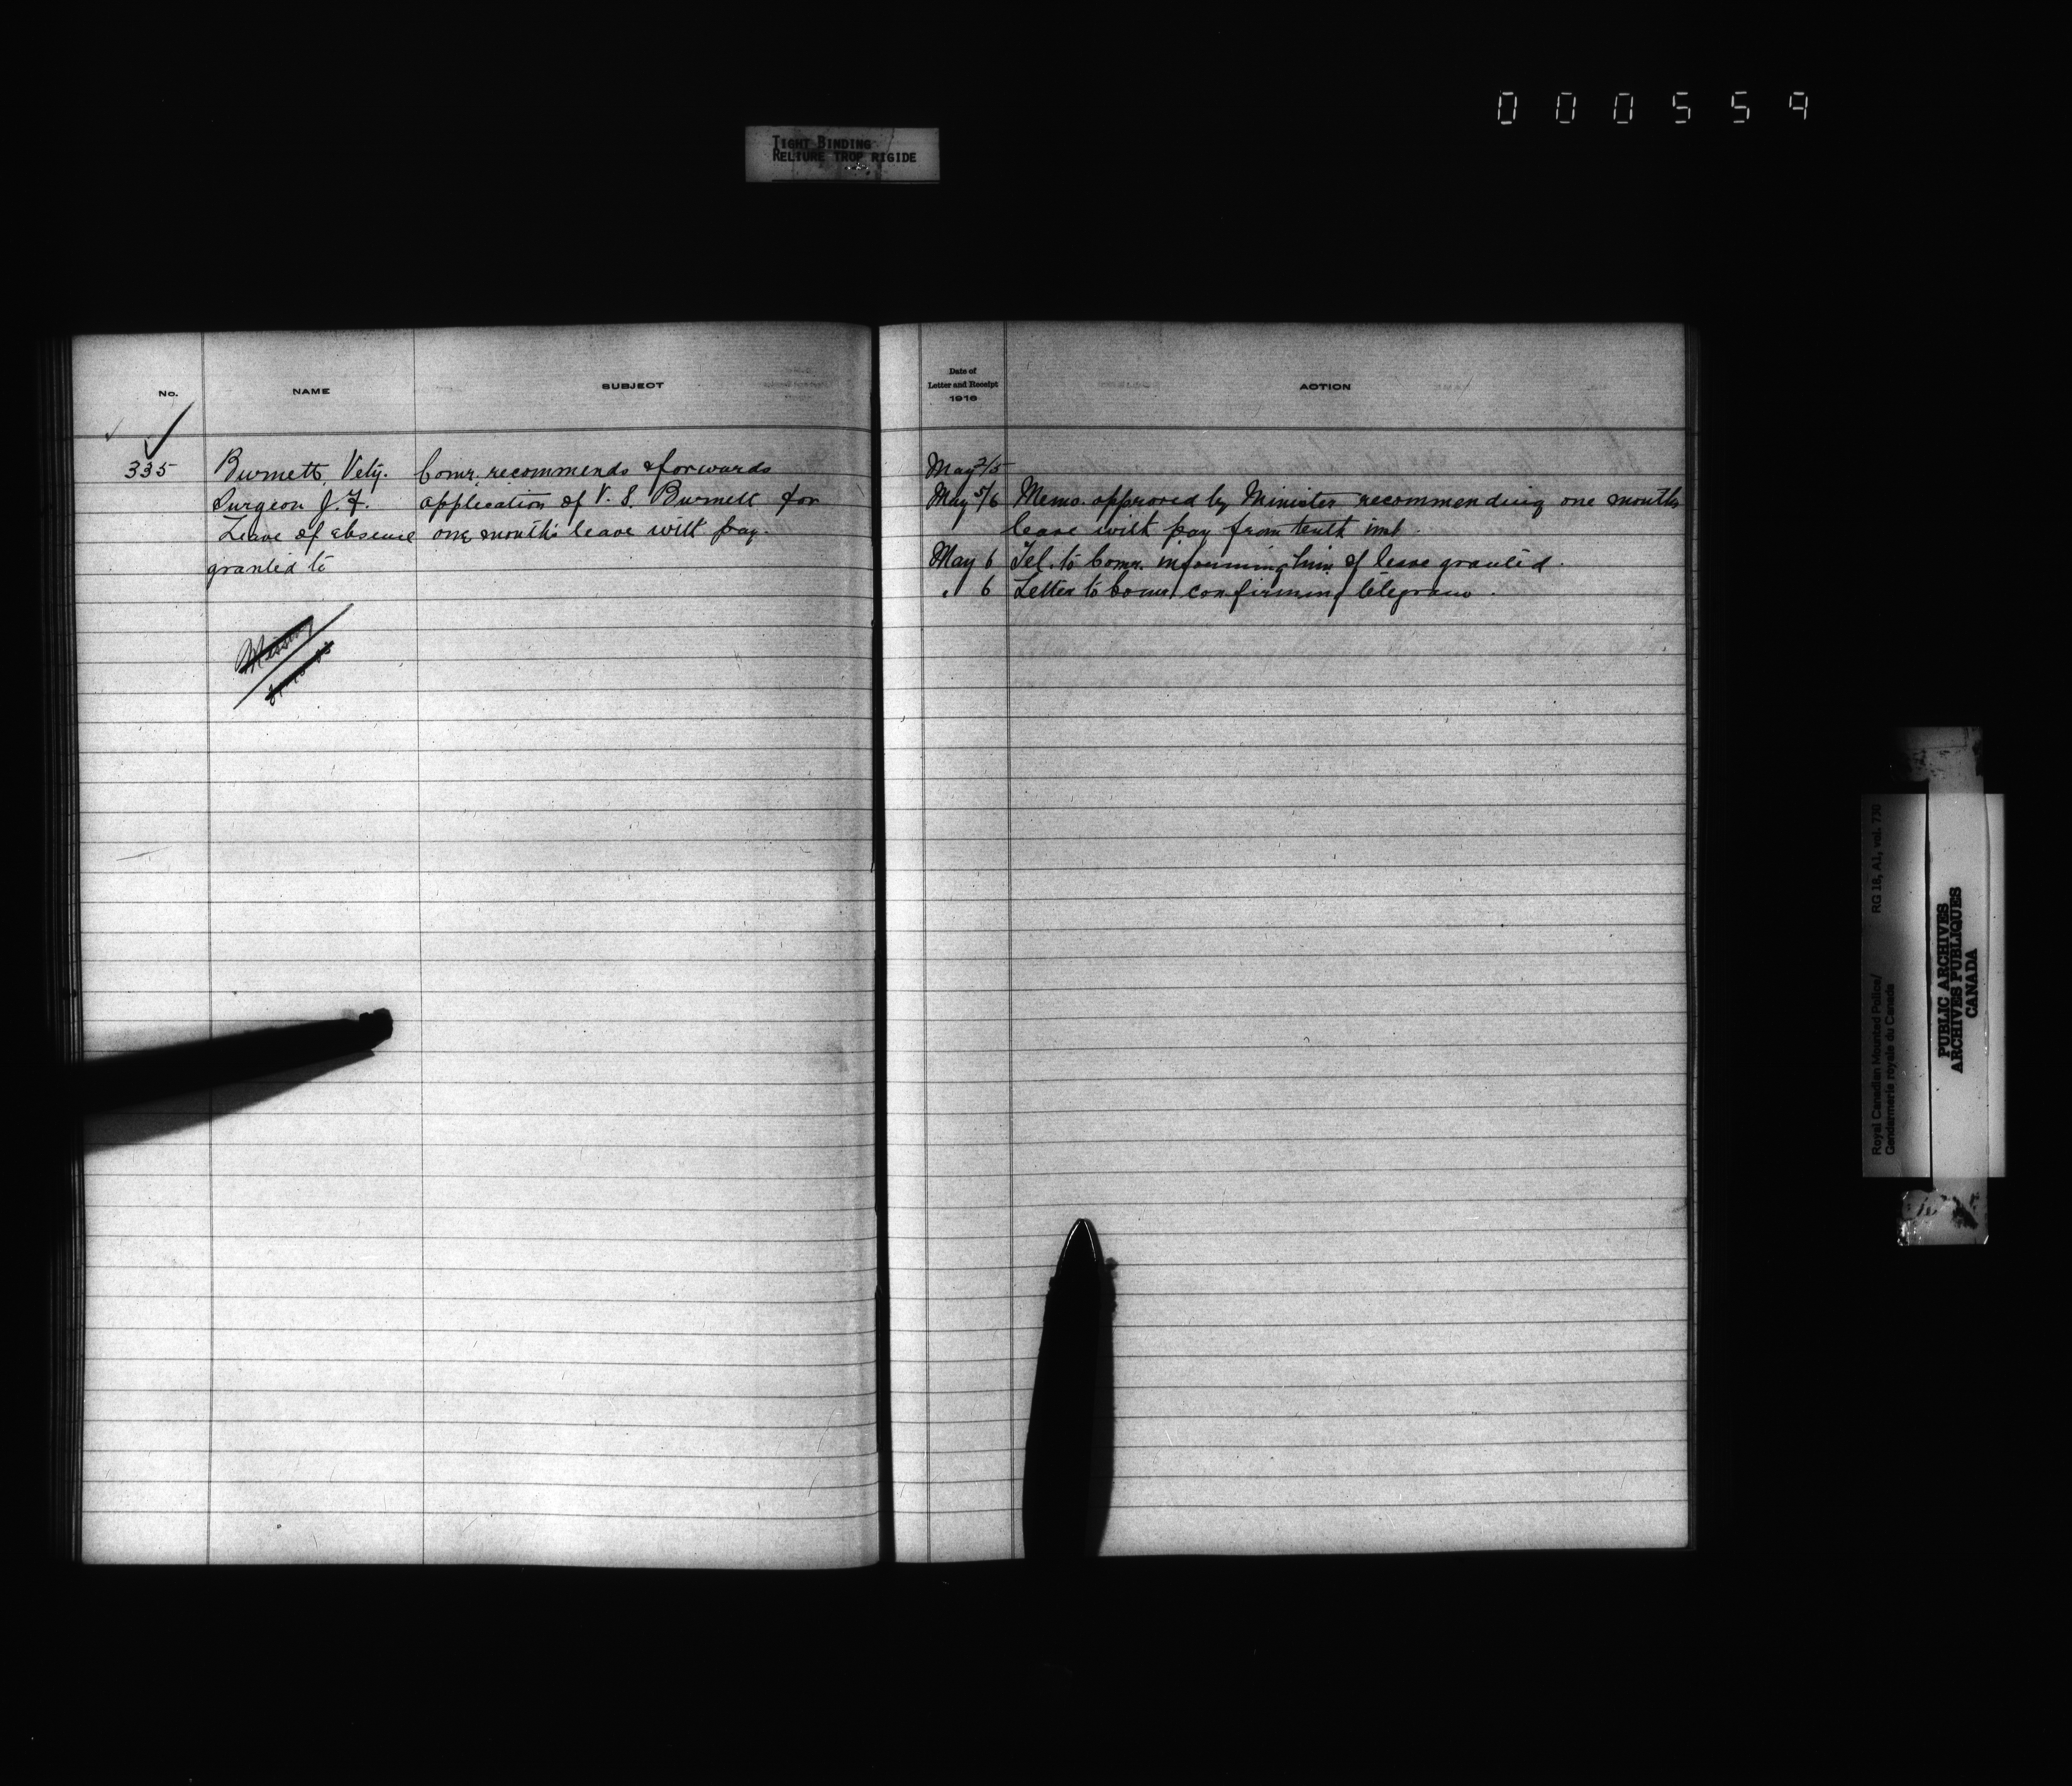 000559
TIGHT BINDING
RELIURE TROP RIGIDE
No.
NAME
SUBJECT
335
Burnett, Vety.
Surgeon J. F.
Leave of absence
granted to
Missing
Comr. recommends & forwards
application of V. S. Burnett for
one month's leave with pay.
Date of
Letter and Receipt
1916
ACTION
May 2/5
May 5/6 Memo. approved by Minister recommending one months
leave with pay from tenth inst.
May 6 Tel. to Comr. informing him of leave granted.
" 6 Letter to Comr. confirming telegram.
Royal Canadian Mounted Police/
Gendarmerie royale du Canada
RG 18, A1, vol. 730
PUBLIC ARCHIVES
ARCHIVES PUBLIQUES
CANADA